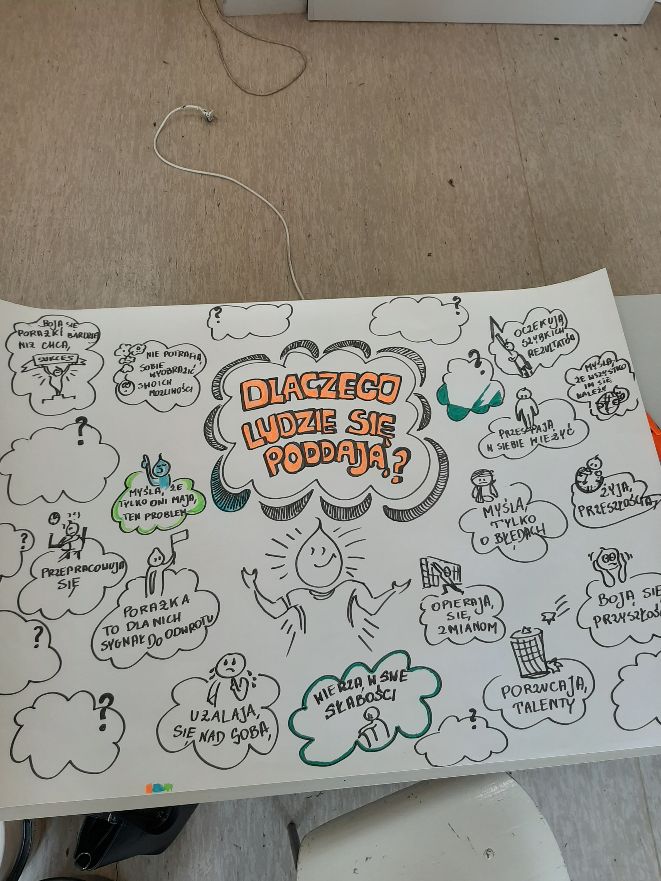 DLACZEGO
LUDZIE SIĘ
PODDAJĄ?
BOJĄ SIĘ
PORAŻKI BARDZIEJ
NIŻ CHCĄ,
SUKCES
NIE POTRAFIĄ
SOBIE
WYOBRAZIĆ
SWOICH
MOŻLIWOŚCI
?
?
OCZEKUJĄ
SZYBKICH
REZULTATÓW
?
MYŚLĄ,
ŻE WSZYSTKO
IM SIĘ
NALEŻY
PRZESTAJĄ
W SIEBIE WIEŻYĆ
?
MYŚLĄ, ŻE
TYLKO ONI MAJĄ
TEN PROBLEM
MYŚLĄ
TYLKO
O BŁĘDACH
ŻYJĄ,
PRZESZŁOŚCIĄ,
?
???
PRZEPRACOWUJĄ
SIĘ
PORAŻKA
TO DLA NICH
SYGNAŁ DO ODWROTU
OPIERAJĄ,
SIĘ,
ZMIANOM
BOJĄ SIĘ
PRZYSZŁOŚCI
?
?
UŻALAJĄ,
SIĘ NAD SOBĄ,
WIERZĄ W SWE
SŁABOŚCI
?
PORZUCAJĄ,
TALENTY